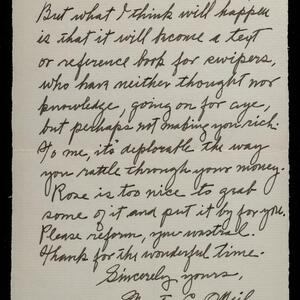 But what I think will happen
is that it will become a text
or reference book for swipers,
who have neither thought nor
knowledge, going on for aye,
but perhaps not making you rich.
To me, it's deplorable the way
you rattle through your money.
Rose is too nice to grab
some of it and put it by for you.
Please reform, you wastrel.
Thanks for the wonderful time.
Sincerely yours,